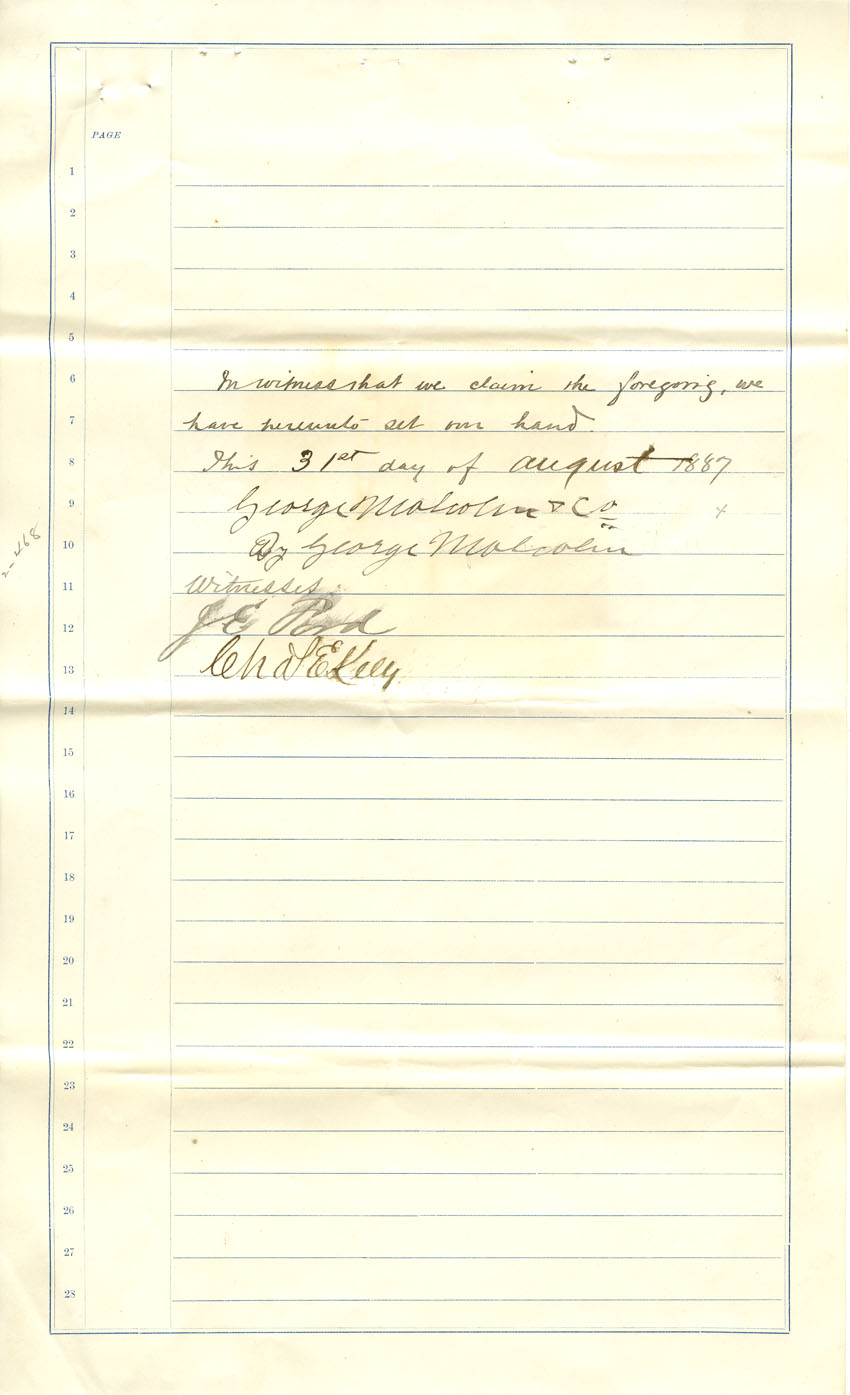 PAGE
1
2
3
4
5
6 In witness that we claim the foregoing, we
7 have hereunto set our hand.
8 This 31st day of August 1887
9 George Malcolm & Co x
10 By George Malcolm
2-468
11 Witnesses:
12 J E
13 Chas E Kelly
14
15
16
17
18
19
20
21
22
23
24
25
26
27
28